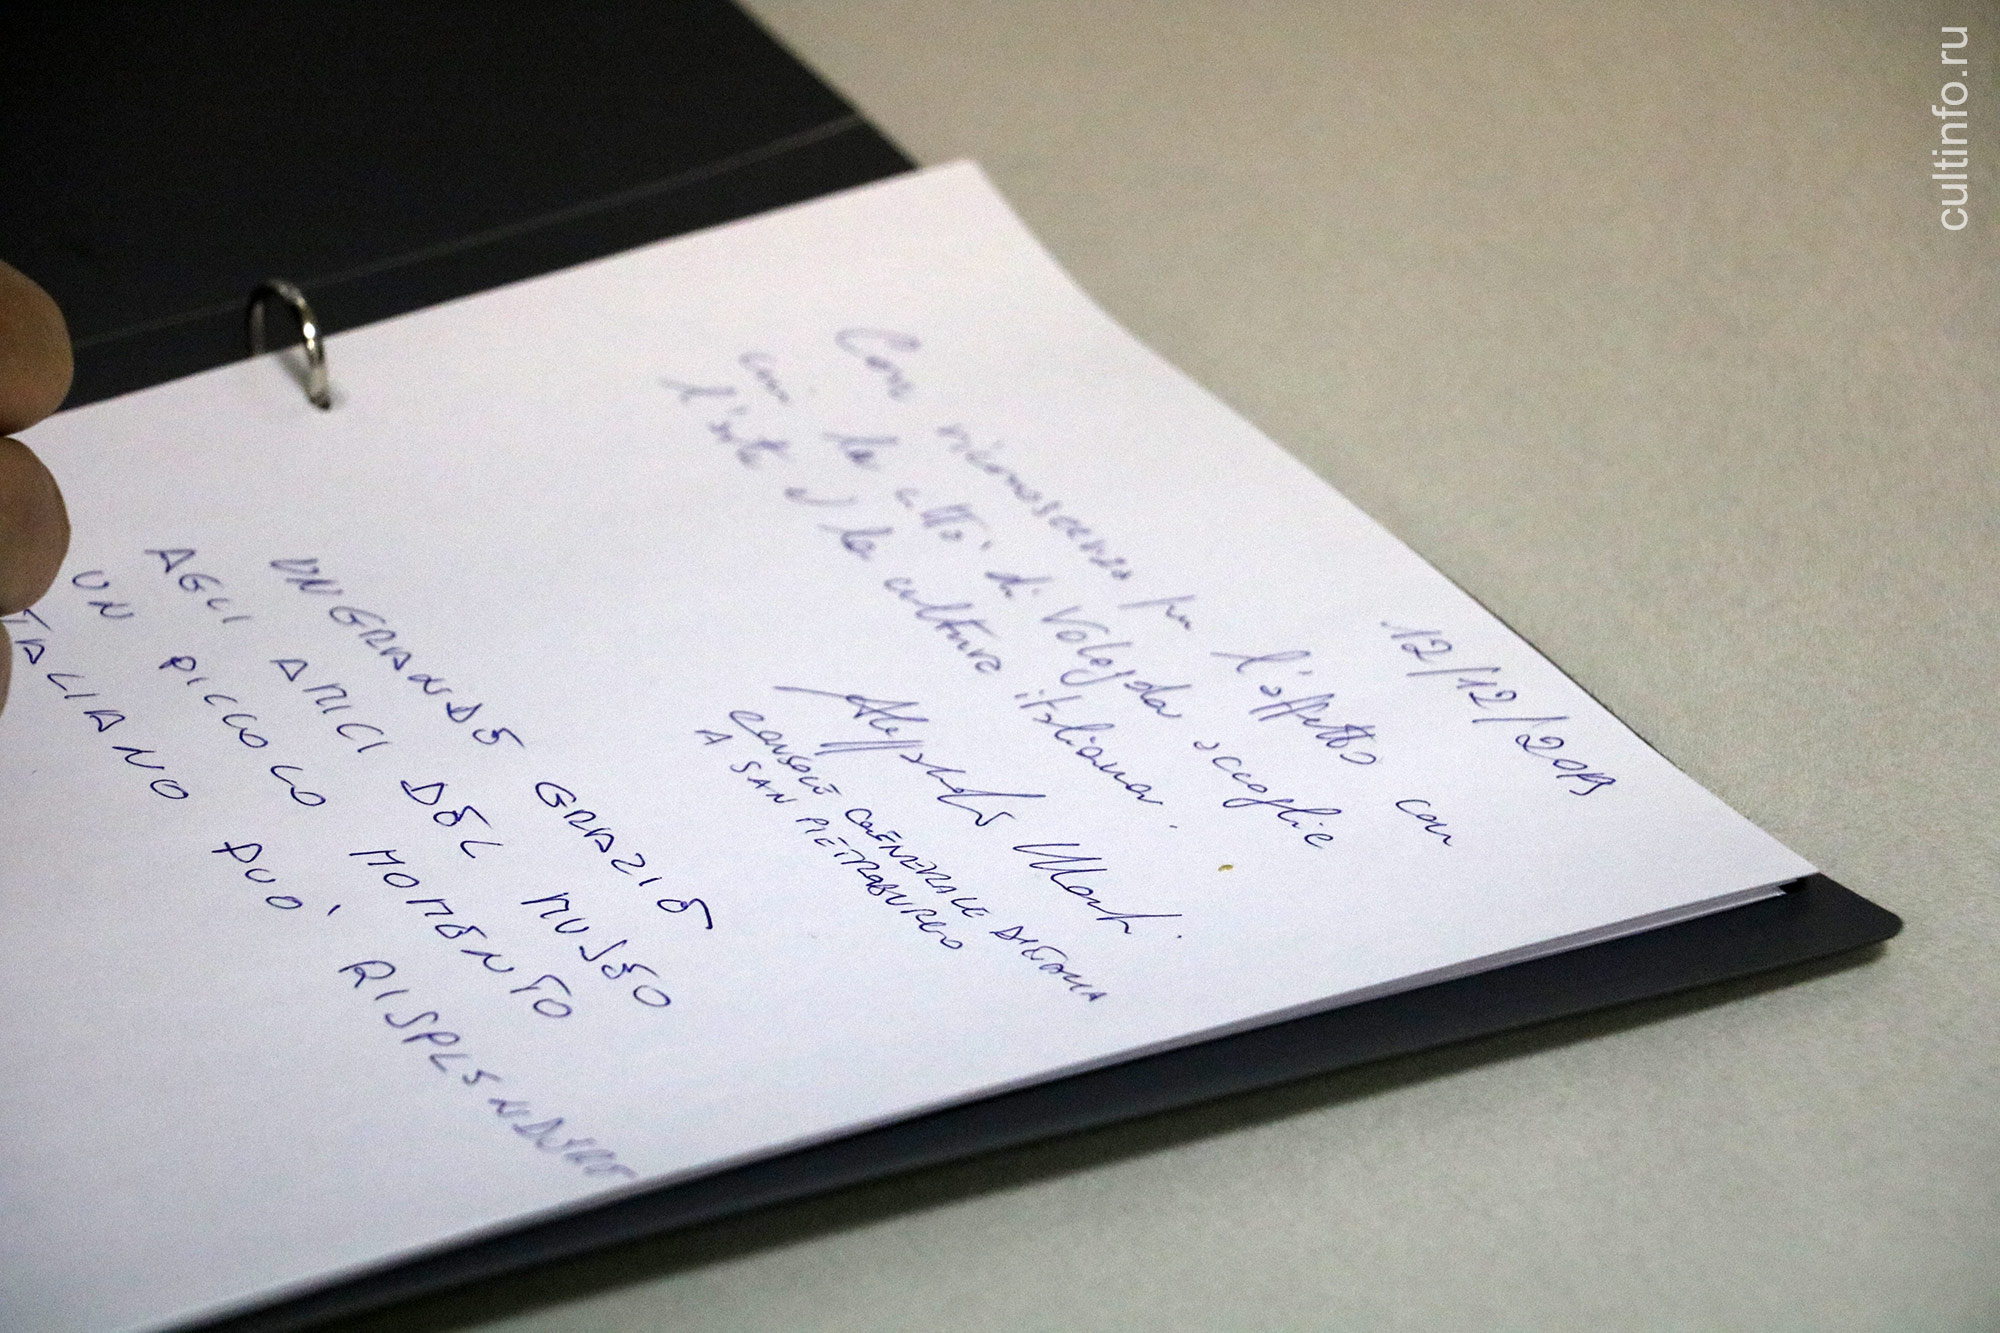 12/12/2019
Con riconoscenza per l'affetto con
cui la città di Vologda accoglie
l'arte e la cultura italiana.
CONSOLE GENERALE D'ITALIA
A SAN PIETROBURGO
UN GRANDE GRAZIE
AGLI AMICI DEL MUSEO
UN PICCOLO MOMENTO
TALIANO PUO' RISPLENDERE
cultinfo.ru